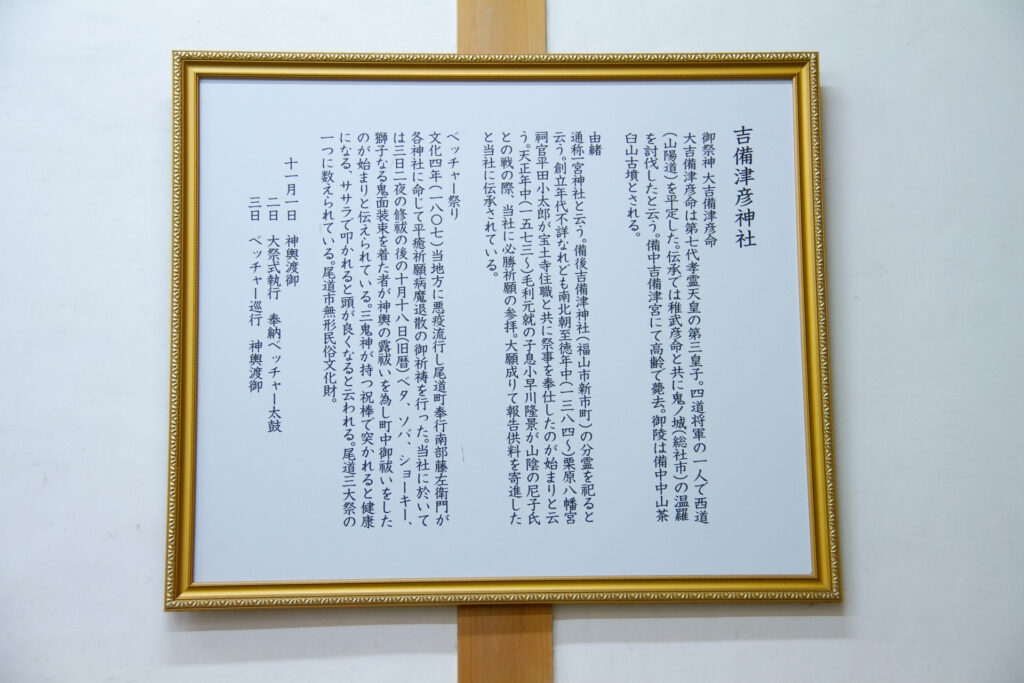 吉備津彦神社
御祭神 大吉備津彦命
大吉備津彦命は第七代孝霊天皇の第三皇子。四道将軍の一人で西道
(山陽道)を平定した。伝承では稚武彦命と共に鬼ノ城(総社市)の温羅
を討伐したと云う。備中吉備津宮にて高齢で薨去。御陵は備中中山茶
臼山古墳とされる。
由緒
通称一宮神社と云う。備後吉備津神社(福山市新市町)の分霊を祀ると
云う。創立年代不詳なれども南北朝至徳年中(一三八四〜)栗原八幡宮
祠官平田小太郎が宝土寺住職と共に祭事を奉仕したのが始まりと云
う。天正年中(一五七三〜)毛利元就の子息小早川隆景が山陰の尼子氏
との戦の際、当社に必勝祈願の参拝。大願成りて報告供料を寄進した
と当社に伝承されている。
ベッチャー祭り
文化四年(一八〇七)当地方に悪疫流行し尾道町奉行南部藤左衛門が
各神社に命じて平癒祈願病魔退散の御祈祷を行った。当社に於いて
は三日二夜の修祓の後の十月十八日(旧暦)ベタ、ソバ、ショーキー、
獅子なる鬼面装束を着た者が神輿の露祓いを為し町中御祓いをした
のが始まりと伝えられている。三鬼神が持つ祝棒で突かれると健康
になる、ササラで叩かれると頭が良くなると云われる。尾道三大祭の
一つに数えられている。尾道市無形民俗文化財。
十一月一日 神輿渡御
二日 大祭式執行 奉納ベッチャー太鼓
三日 ベッチャー巡行 神輿渡御